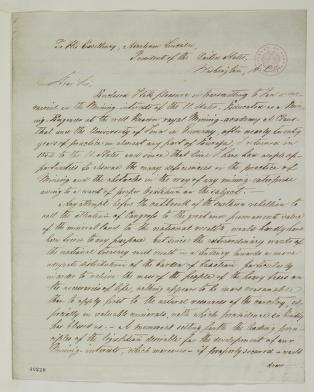 To His Excellency, Abraham Lincoln
President of the United States,
Washington, D.C.
Dear Sir,
Enclosed I take pleasure in transmitting to You a me-
morial on the Mining interests of the U. States. Educated as a Mi-
ning Engineer at the well known royal Mining-academy at
and the University of in Germany, after nearly twenty
years of practice in almost any part of Europe, I returned in
to the U. States and since that time I have had ample op-
portunities to observe the many differences in the practice of
Mining and the obstacles in the way of any mining enterprise
owing to a want of proper legislation on this subject.
Any attempt before the outbreak of the southern rebellion to
call the attention of Congress to the great and permanent value
of the mineral lands to the national wealth, would hardly have
been done to any purpose, but since the extraordinary wants of
the national Treasury must make in a country towards a more
equitable distribution of the burden of taxation particularly
in order to relieve the mass of the people of the heavy taxes on
the necessaries of life, nothing appears to be more reasonable
than to apply first to the natural resources of the country, es-
pecially in valuable minerals, with which providence so kindly
has blessed us. — A memorial setting forth the leading prin-
ciples of the legislation desirable for the development of our
Mining-interests, which moreover if properly secured would
draw